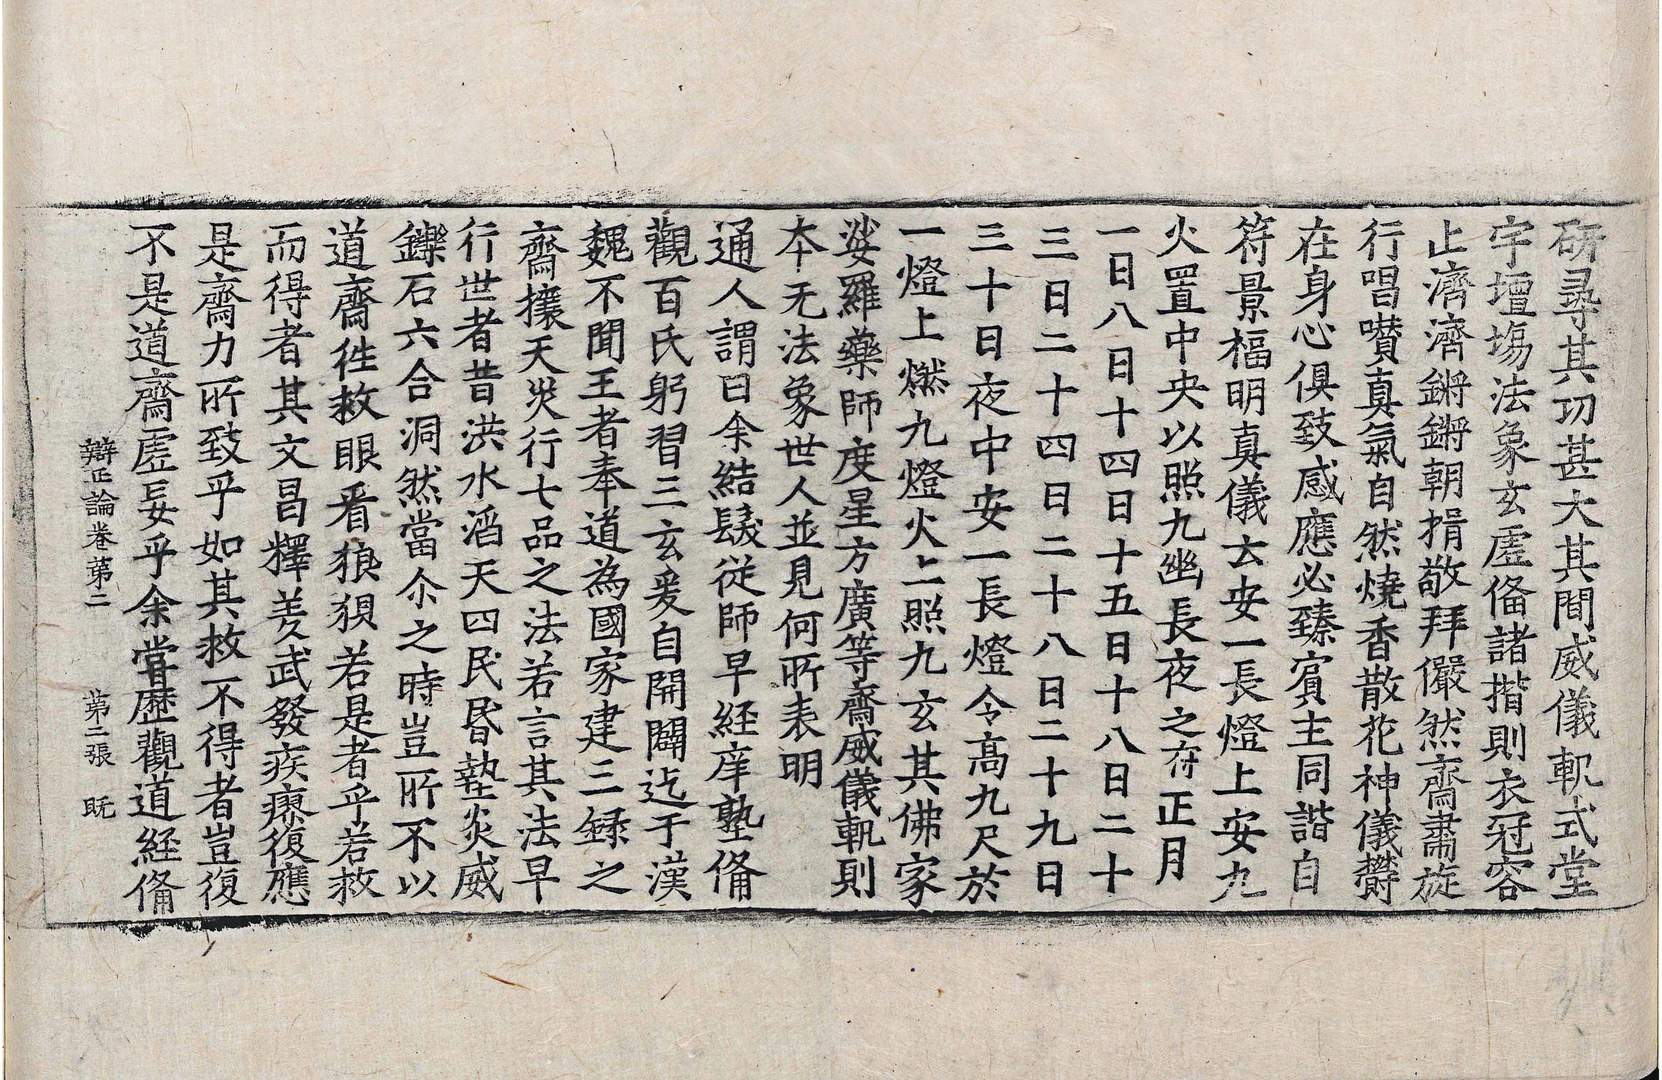 硏尋其功甚大其間威儀軌式堂
宇壇場法象玄虛俻諸揩則衣冠容
止濟濟鏘鏘朝揖敬拜儼然齋肅旋
行唱讃真氣自然燒香散花神儀欝
在身心俱致感應必臻賓主同諧自
符景福明真儀云安一長燈上安九
火置中央以照九幽長夜之府正月
一日八日十四日十五日十八日二十
三日二十四日二十八日二十九日
三十日夜中安一長燈令高九尺於
一燈上燃九燈火上照九玄其佛家
娑羅藥師度星方廣等齋威儀軌則
本无法象世人並見何所表明
通人謂曰余結髮從師早経庠塾俻
觀百氏躬習三玄爰自開闢迄于漢
魏不聞王者奉道為國家建三錄之
齋攘天災行七品之法若言其法早
行世者昔洪水滔天四民昏墊炎威
鑠石六合洞然當尒之時豈所不以
道齋徃救眼看狼狽若是者乎若救
而得者其文昌釋羌武發疾瘳復應
是齋力所致乎如其救不得者豈復
不是道齋虛妄乎余甞歷觀道経俻
辯正論卷第二 第二張 旣